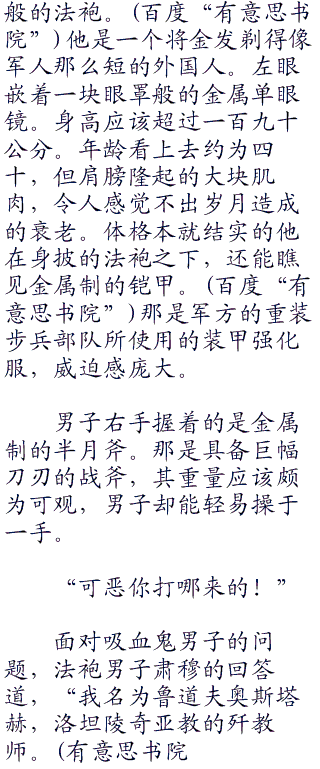 般的法袍。(百度“有意思书
院”)他是一个将金发剃得像
军人那么短的外国人。左眼
嵌着一块眼罩般的金属单眼
镜。身高应该超过一百九十
公分。年龄看上去约为四
十，但肩膀隆起的大块肌
肉，令人感觉不出岁月造成
的衰老。体格本就结实的他
在身披的法袍之下，还能瞧
见金属制的铠甲。(百度“有
意思书院”)那是军方的重装
步兵部队所使用的装甲强化
服，威迫感庞大。
男子右手握着的是金属
制的半月斧。那是具备巨幅
刀刃的战斧，其重量应该颇
为可观，男子却能轻易操于
一手。
“可恶你打哪来的！”
面对吸血鬼男子的问
题，法袍男子肃穆的回答
道，“我名为鲁道夫奥斯塔
赫，洛坦陵奇亚教的歼教
师。(有意思书院